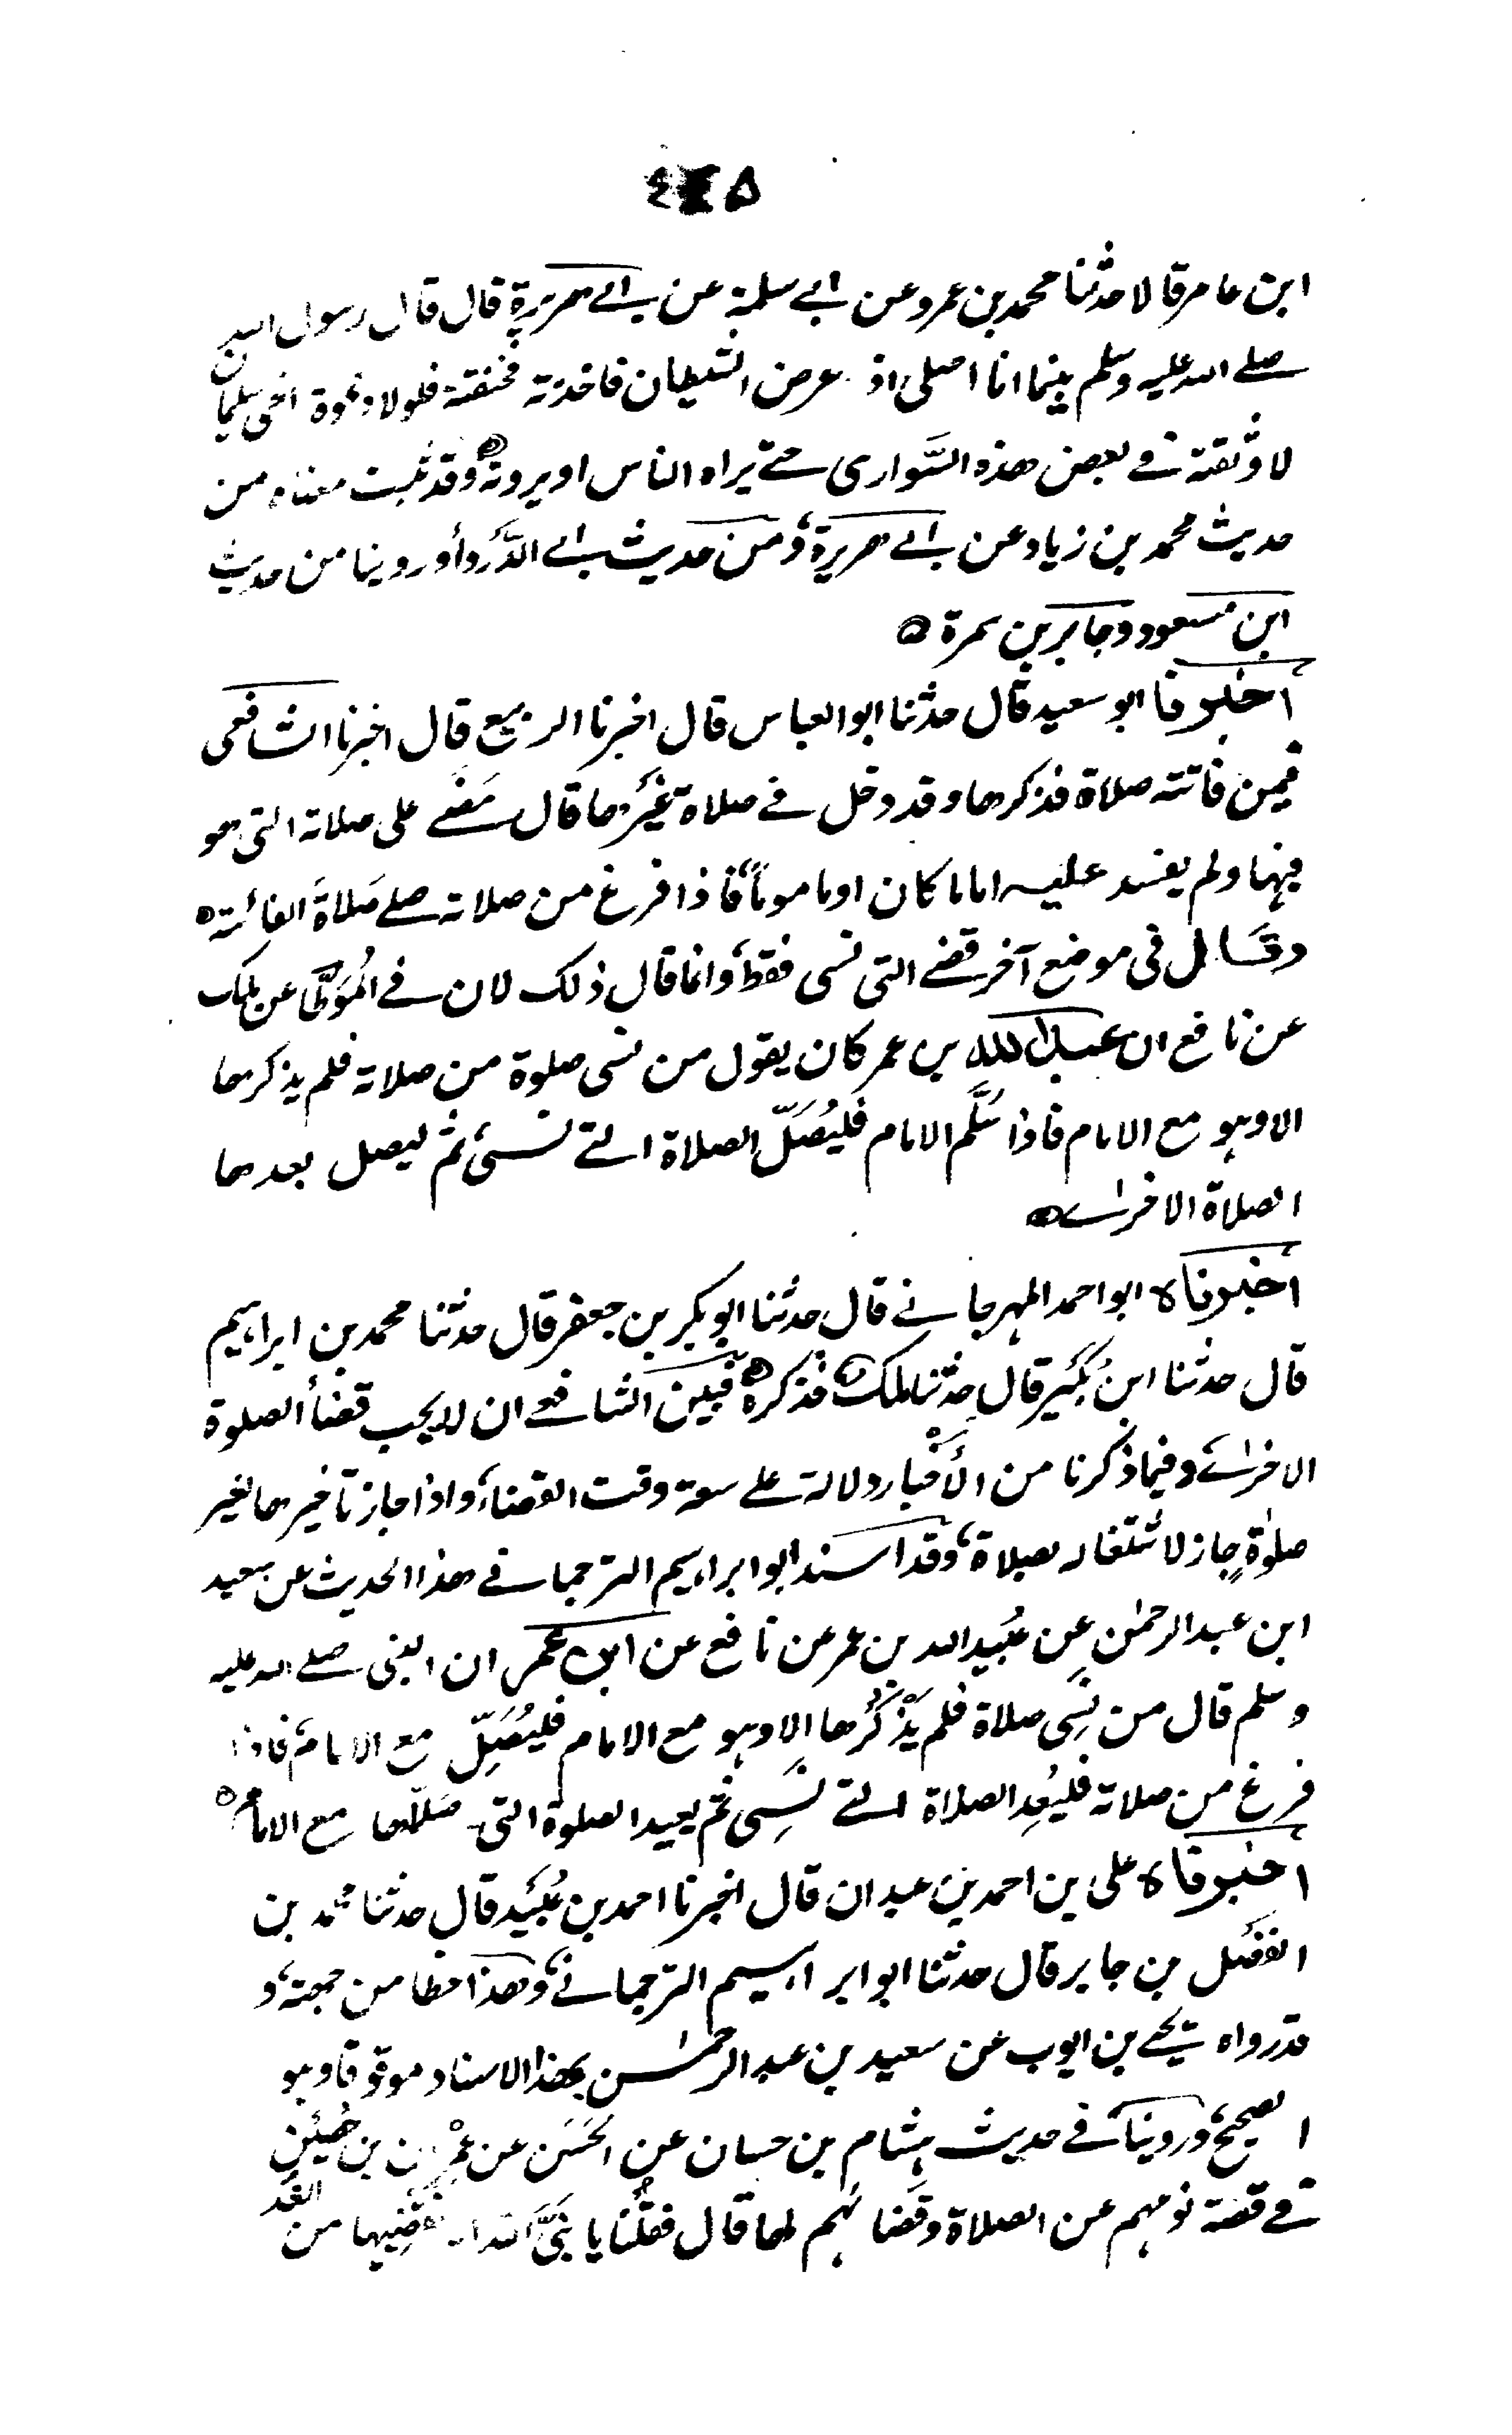 ابن عامر قالا حدثنا محمد بن عمرو عن ابي سلمة عن ابي هريرة قال قال رسول الله
صلے الله عليه وسلم بينما انا اصلي اذ عرض الشيطان فاخذته فخنقته فلولا دعوة اخي سليمان
لاوثقته في بعض هذه السَّواري حتے يراه الناس او يرونه وقد ثبت معناه من
حديث محمد بن زياد عن ابي هريرة، ومن حديث ابي الدَّرْدأ وروينا من حديث
ابن مسعود وجابر بن سمرة ه
أخبرنا ابو سعيد قال حدثنا ابو العباس قال اخبرنا الربيع قال اخبرنا الشافعي
فيمن فاتته صلاة فذكرها وقد دخل في صلاة غيرها قال مَضٰے علی صلاته التي هو
فيها ولم يفسد عليه اماما كان او ماموماً، فاذا فرغ من صلاته صلے صَلاةَ الفائتة ه
وقال في موضع آخر قضے التي نسي فقط، وانما قال ذلك لان في المُوَطَّا عن ملك
عن نافع ان عبد الله بن عمر كان يقول من نسي صلوة من صلاته فلم يذكرها
الا وهو مع الامام فاذا سَلَّم الامام فليُصَلّ الصلاة التے نسي، ثم ليصل بعدها
الصلاة الاخرٰے ه
أخبرناه ابو احمد المهرجاني قال حدثنا ابو بكر بن جعفر قال حدثنا محمد بن ابراهيم
قال حدثنا ابن بُكَيْر قال حدثنا ملك فذكره ه فبين الشافعي ان لا يجب قضأ الصلوة
الاخرٰے، وفيما ذكرنا من الأخْبار دلالة علے سعة وقت القضاء، واذا جاز تاخيرها لغير
صلوٰةٍ جاز لاشتغاله بصلاة، وقد اسند ابو ابراهيم الترجماني هذا الحديث عن سعيد
ابن عبد الرحمٰن عن عُبَيد الله بن عمر عن نافع عن ابن عمر ان النبي صلے الله عليه
وسلم قال من نَسِي صلاة فلم يَذْكُرْها الا وهو مع الامام فليُصَلِّ مع الامام، فاذا
فرغ من صلاته فليُعِدِ الصلاة التے نَسِي ثم يعيد الصلوة التي صَلاها مع الامام ه
أخبرناه علي بن احمد بن عبدان قال اخبرنا احمد بن عُبَيْد قال حدثنا محمد بن
الفضل بن جابر قال حدثنا ابو ابراهيم الترجماني، وهذا خطا من جهته، و
قد رواه يحيے بن ايوب عن سعيد بن عبد الرحمٰن بهذا الاسناد موقوفا وهو
الصحيح، وروينا في حديث هشام بن حسان عن الحَسَن عن عِمْران بن حُصَيْن
في قصة نومهم عن الصلاة وقضائهم لها قال فقُلنا يا نَبِيَّ الله نقضيها من الغد